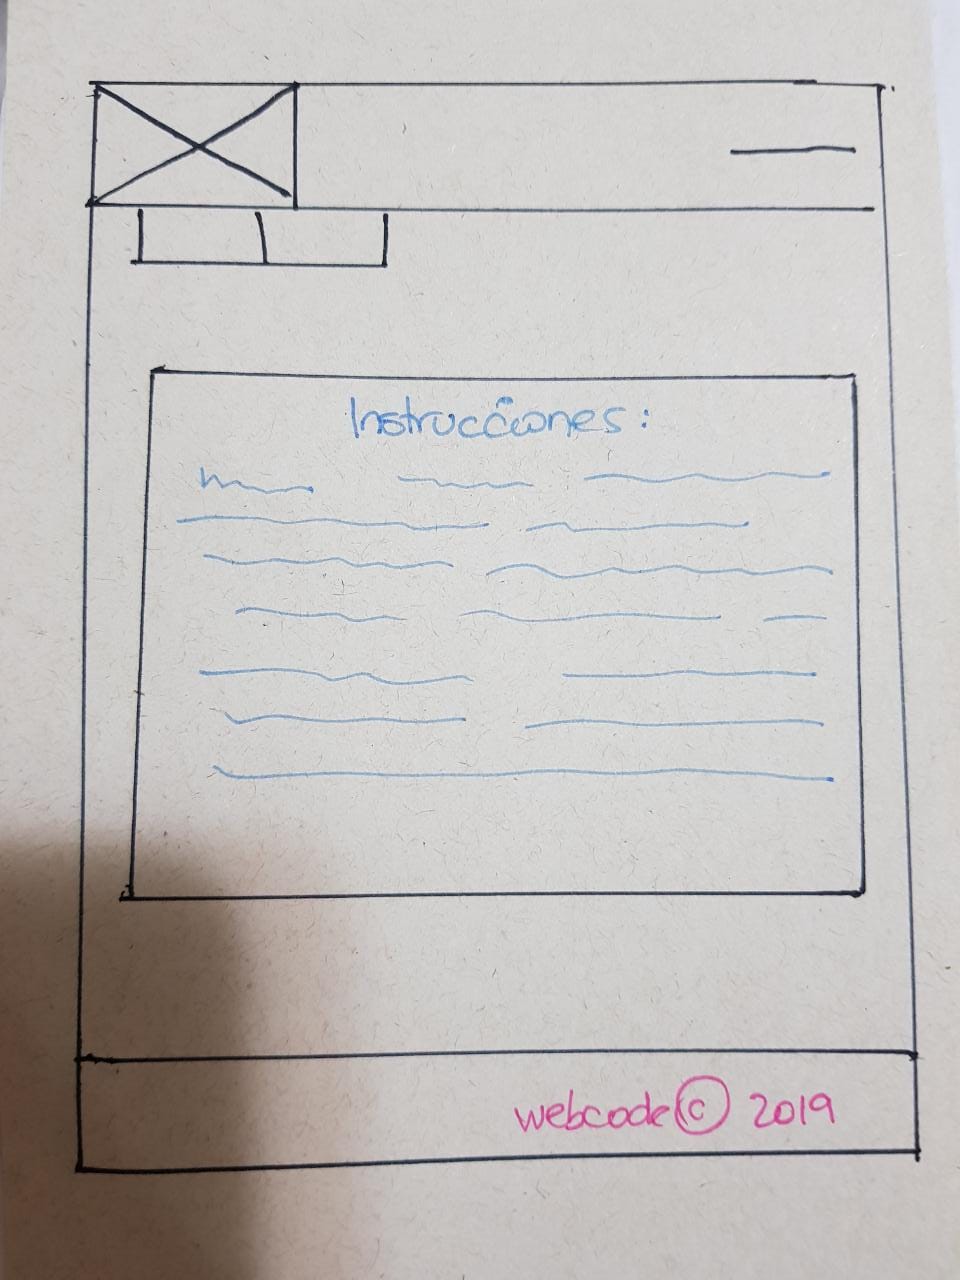 Instrucciones:
webcode © 2019